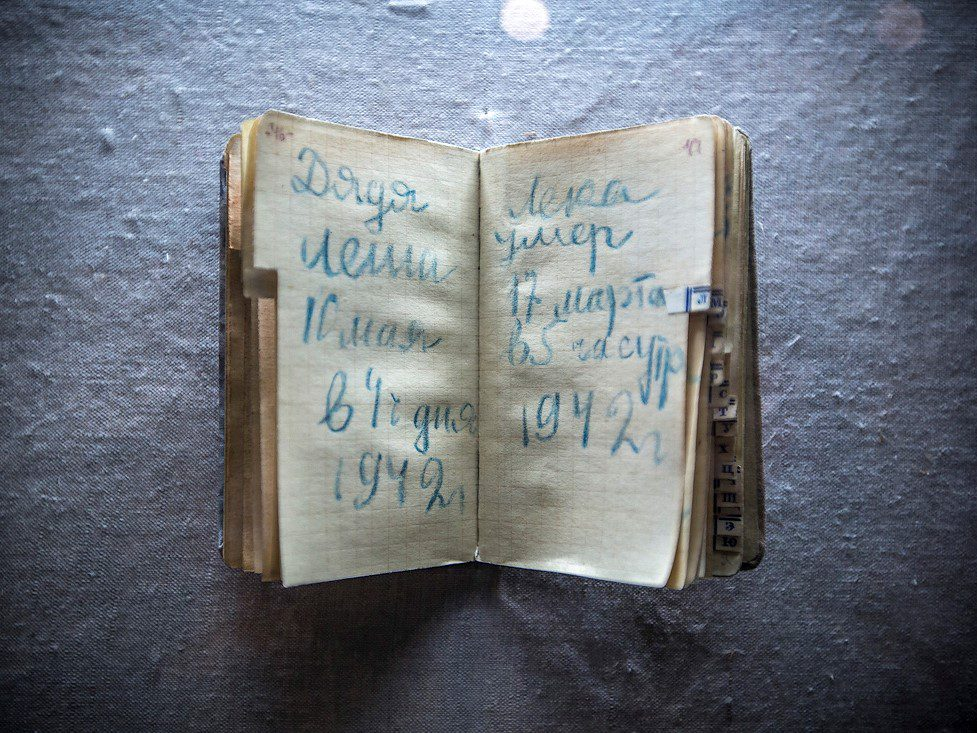 Дядя
Леша
10 мая
в 4 ч дня
1942 г
Лека
умер
17 марта
в 5 час утр
1942 г
Л
Р
С
Т
У
Х
Ц
Ш
Э
Ю